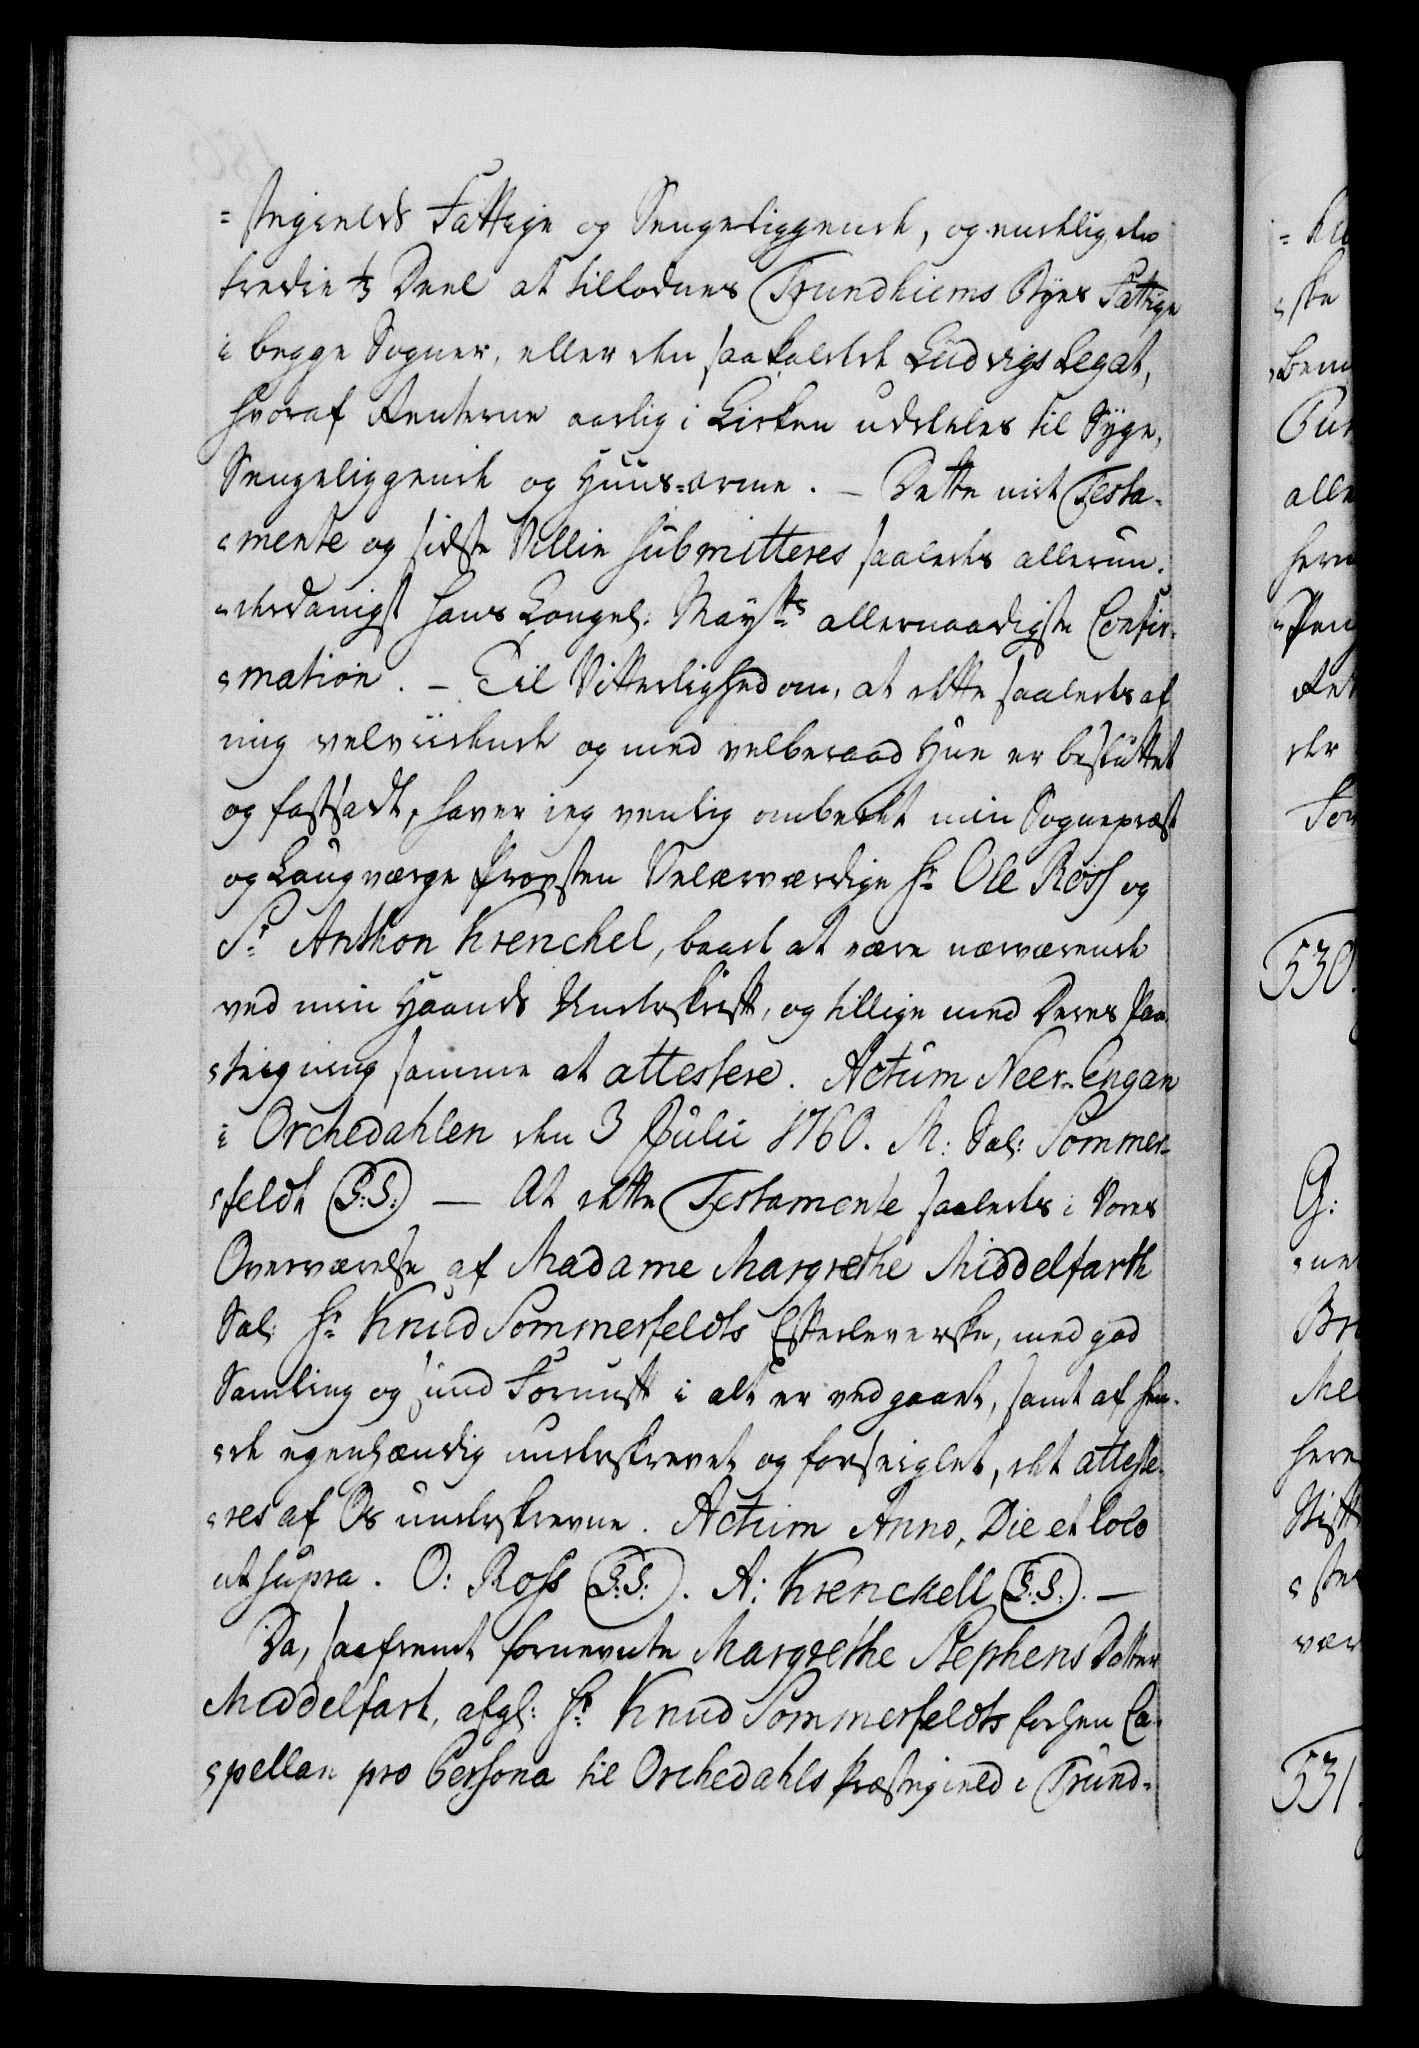 =stegields Fattige og Sengeliggende, og endelig den
tredie ⅓ Deel at tilfalde Trundhiems Byes Fattige
i begge Sogner, eller den saakaldede Ludvigs Legat,
hvoraf Renterne aarlig i Kirken uddeles til Syge,
Sengeliggende og Huus-arme. – Dette mit Testa-
=mente og sidste Villie submitteres saaledes allerun-
=derdanigst Hans Kongel: Mayts allernaadigste Confir-
=mation. – Til Vitterlighed om, at dette saaledes af
mig velvidende og med velberaad Hue er besluttet
og fastsadt, haver ieg venlig ombedet min Sognepræst
og Laugværge Provsten Velærværdige Hr Ole Ross og
Sr Anthon Krenchel, baade at være nærværende
ved min Haands Underskrift, og tillige med Deres Paa-
=tegning samme at attestere. Actum Neer-Engan
i Orchedahlen den 3 Julii 1760. M: Sal: Sommer-
=feldt (L:S:) — At dette Testamente saaledes i Vores
Overværelse af Madame Margrethe Middelfarth
Sal: Hr Knud Sommerfeldts Efterleverske, med god
Samling og sund Fornuft i alt er vedgaaet, samt af hen-
=de egenhændig underskrevet og forseiglet, det atteste-
=res af Os underskrevne. Actum Anno, Die et loco
ut supra. O: Ross (L:S:). A: Krenckell (L:S:). —
Da, saafremt fornevnte Margrethe Stephens Datter
Middelfart, afgl: Hr Knud Sommerfeldts forhen Ca-
=pellan pro Persona til Orchedahls Præstegield i Trund-
530.
531.